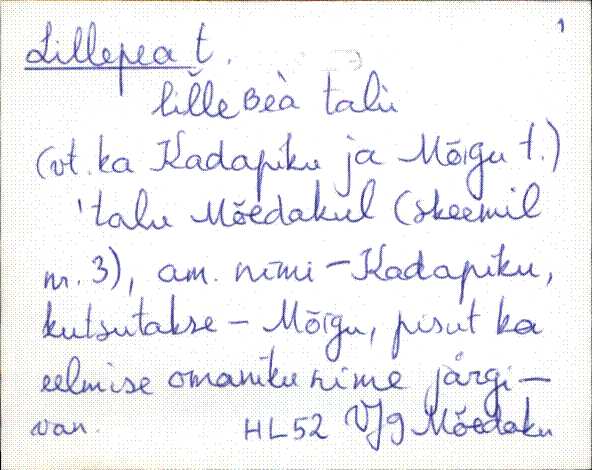 1
Lillepea t.
lil̆leʙeà talù
(vt. ka Kadapiku ja Mõigu t.)
'talu Mõedakul (skeemil
nr. 3), am. nimi - Kadapiku,
kutsutakse - Mõigu, pisut ka
eelmise omaniku nime järgi -
van. HL52 VJg Mõedaku